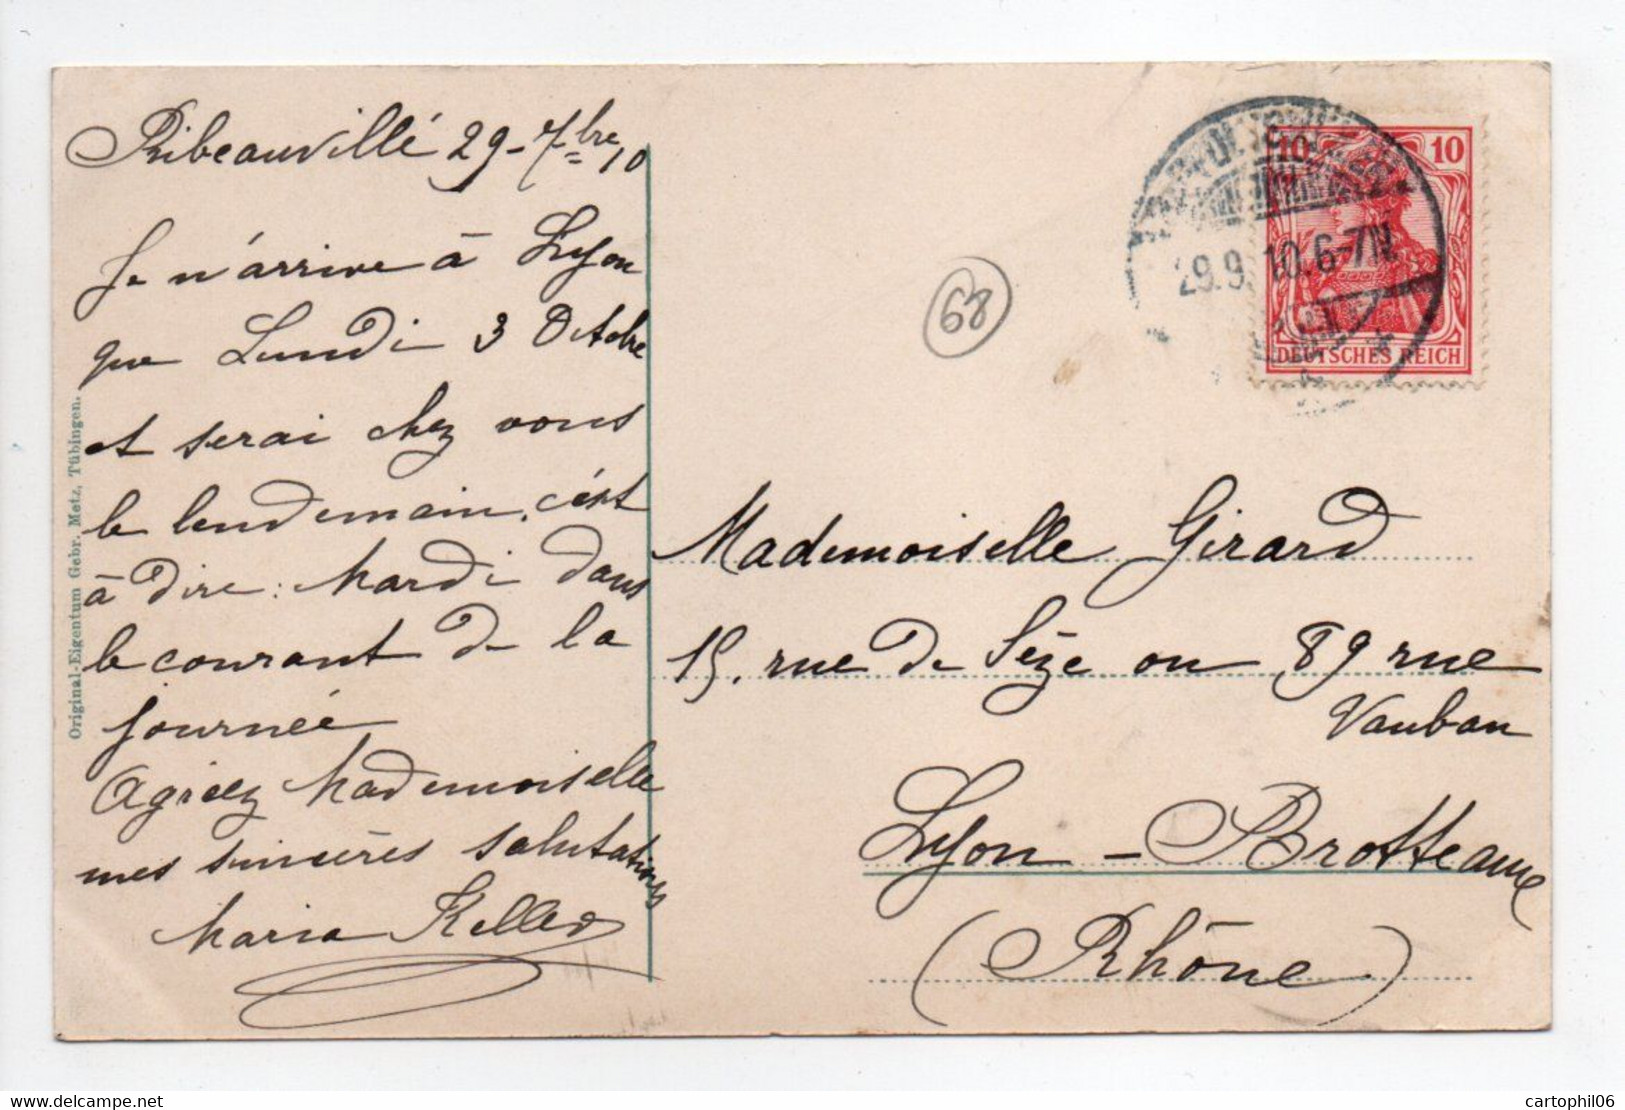 Ribeauvillé 29-7bre 10
Je n'arrive à Lyon
que Lundi 3 Octobre
et serai chez vous
le lendemain, c'est
à dire: Mardi dans
le courant de la
journée
Agréez Mademoiselle
mes sincères salutations
Maria Keller
Original-Eigentum Gebr. Metz, Tübingen.
68
29.9.10.6-7N.
10 10
DEUTSCHES REICH
Mademoiselle Girard
15, rue de Sèze ou 89 rue
Vauban
Lyon - Brotteaux
(Rhône)
cartophil06